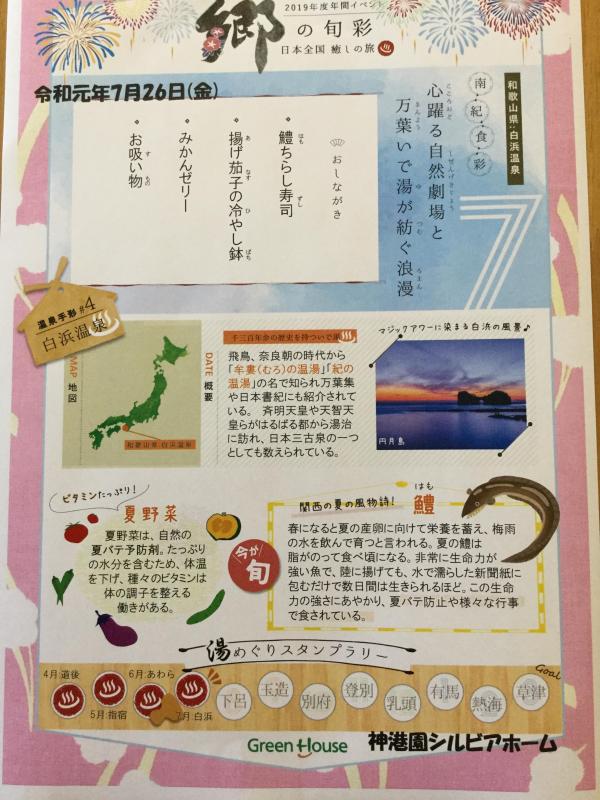 2019年度年間イベント
郷の旬彩
日本全国 癒しの旅
令和元年7月26日(金)
和歌山県:白浜温泉
南・紀・食・彩
心躍る自然劇場と
こころおど しぜんげきじょう
万葉いで湯が紡ぐ浪漫
まんよう ゆ つむ ろまん
7
おしながき
鱧ちらし寿司
はも ずし
揚げ茄子の冷やし鉢
あ なす ひ ばち
みかんゼリー
お吸い物
す もの
温泉手形#4
白浜温泉
MAP 地図
和歌山県 白浜温泉
DATE 概要
千三百年余の歴史を持ついで湯
飛鳥、奈良朝の時代から
「牟婁(むろ)の温湯」「紀の
温湯」の名で知られ万葉集
や日本書紀にも紹介されて
いる。 斉明天皇や天智天
皇らがはるばる都から湯治
に訪れ、日本三古泉の一つ
としても数えられている。
マジックアワーに染まる白浜の風景♪
円月島
ビタミンたっぷり!
夏野菜
夏野菜は、自然の
夏バテ予防剤。たっぷり
の水分を含むため、体温
を下げ、種々のビタミンは
体の調子を整える
働きがある。
今が
旬
関西の夏の風物詩!
はも
鱧
春になると夏の産卵に向けて栄養を蓄え、梅雨
の水を飲んで育つと言われる。夏の鱧は
脂がのって食べ頃になる。非常に生命力が
強い魚で、陸に揚げても、水で濡らした新聞紙に
包むだけで数日間は生きられるほど。この生命
力の強さにあやかり、夏バテ防止や様々な行事
で食されている。
湯めぐりスタンプラリー
4月:道後
5月:指宿
6月:あわら
7月:白浜
下呂
玉造
別府
登別
乳頭
有馬
熱海
草津
Goal
Green House
神港園シルビアホーム